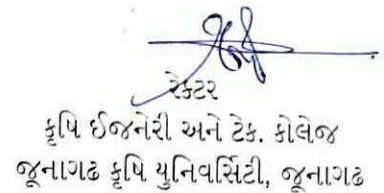 રેક્ટર
કૃષિ ઈજનેરી અને ટેક. કોલેજ
જૂનાગઢ કૃષિ યુનિવર્સિટી, જૂનાગઢ